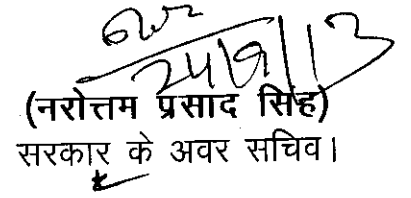 24/9/13
(नरोत्तम प्रसाद सिंह)
सरकार के अवर सचिव।